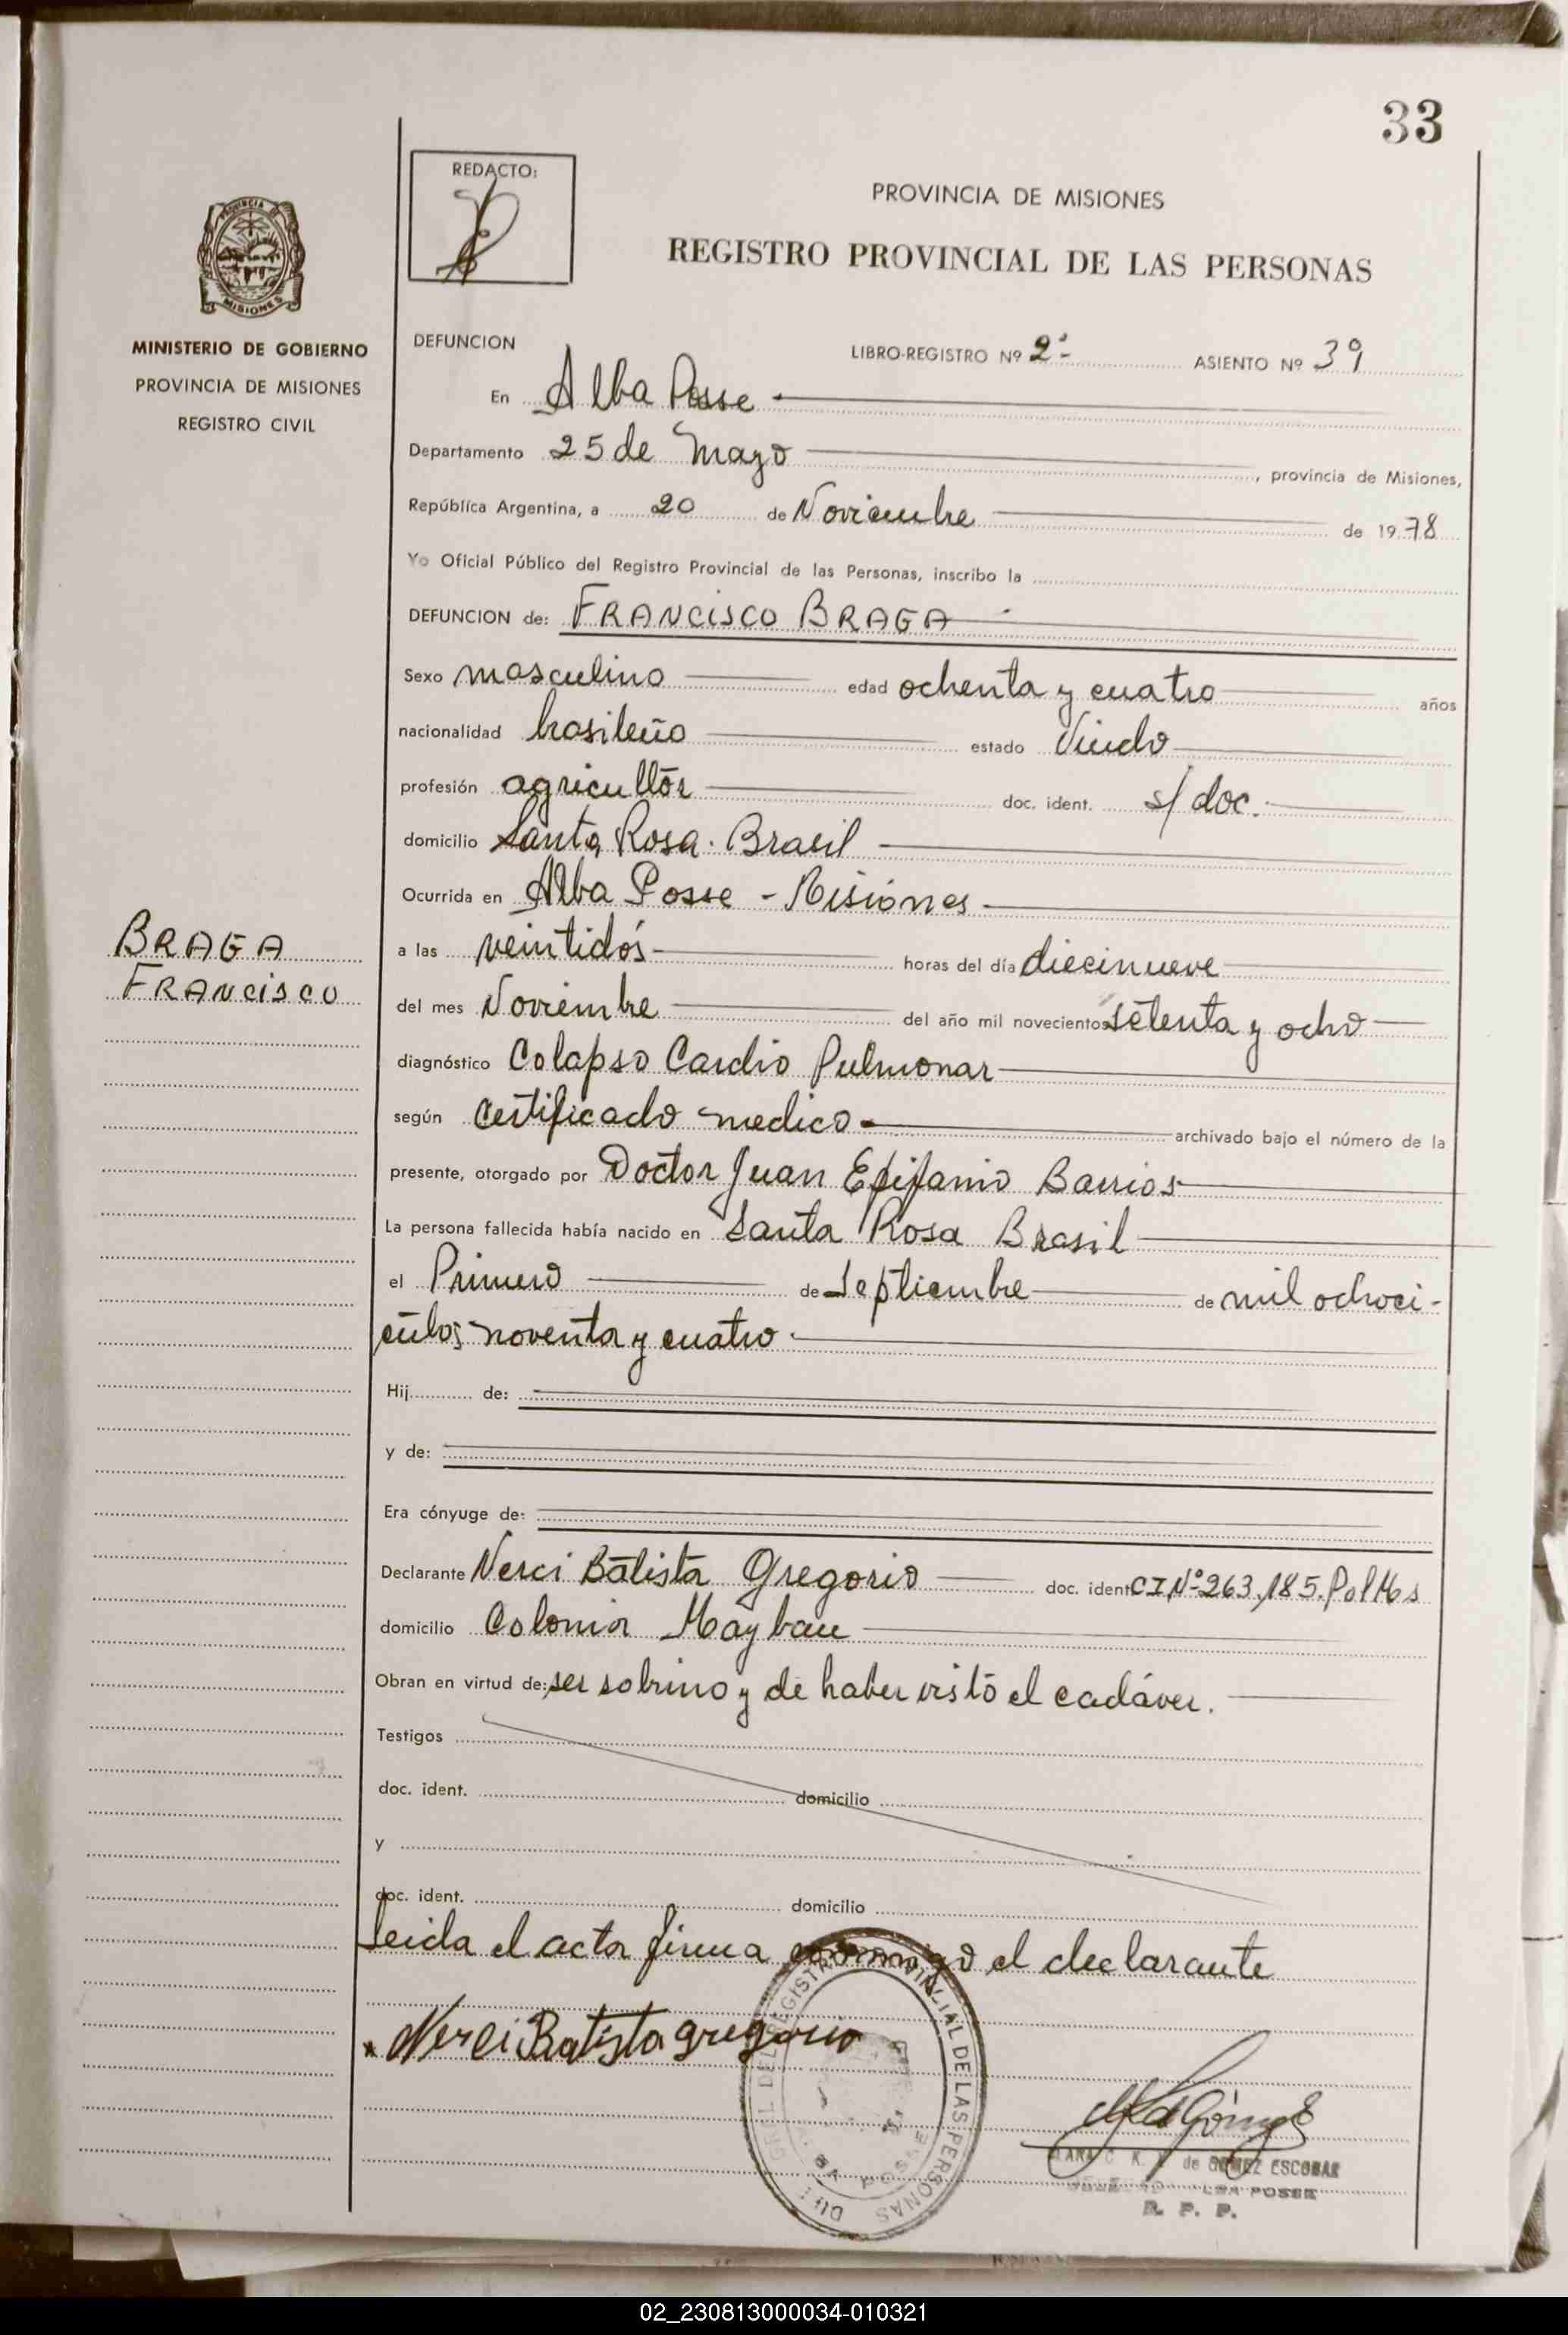 33
REDACTO:
PROVINCIA DE MISIONES
REGISTRO PROVINCIAL DE LAS PERSONAS
PROVINCIA DE
MISIONES
MINISTERIO DE GOBIERNO
PROVINCIA DE MISIONES
REGISTRO CIVIL
DEFUNCION
LIBRO-REGISTRO Nº 2º- ASIENTO Nº 39
En Alba Posse
Departamento 25 de Mayo, provincia de Misiones,
República Argentina, a 20 de Noviembre de 1978
Yo Oficial Público del Registro Provincial de las Personas, inscribo la
DEFUNCION de: FRANCISCO BRAGA
Sexo masculino edad ochenta y cuatro años
nacionalidad brasileño estado Viudo
profesión agricultor doc. ident. s/doc.
domicilio Santa Rosa. Brasil
Ocurrida en Alba Posse - Misiones
BRAGA
FRANCISCO
a las veintidós horas del día diecinueve
del mes Noviembre del año mil novecientos setenta y ocho
diagnóstico Colapso Cardio Pulmonar
según Certificado medico archivado bajo el número de la
presente, otorgado por Doctor Juan Epifanio Barrios
La persona fallecida había nacido en Santa Rosa Brasil
el Primero de Septiembre de mil ochoci-
entos noventa y cuatro
Hij de:
y de:
Era cónyuge de:
Declarante Nerci Batista Gregorio doc. ident. C I Nº 263.185. Pol Mos
domicilio Colonia
Obran en virtud de: ser sobrino y de haber visto el cadáver.
Testigos
doc. ident. domicilio
y
doc. ident. domicilio
Leida el acta firma conmigo el declarante
Nerci Batista gregorio
REGISTRO PROVINCIAL DE LAS PERSONAS
de GOMEZ ESCOBAR
ALBA POSSE
R. P. P.
02_230813000034-010321